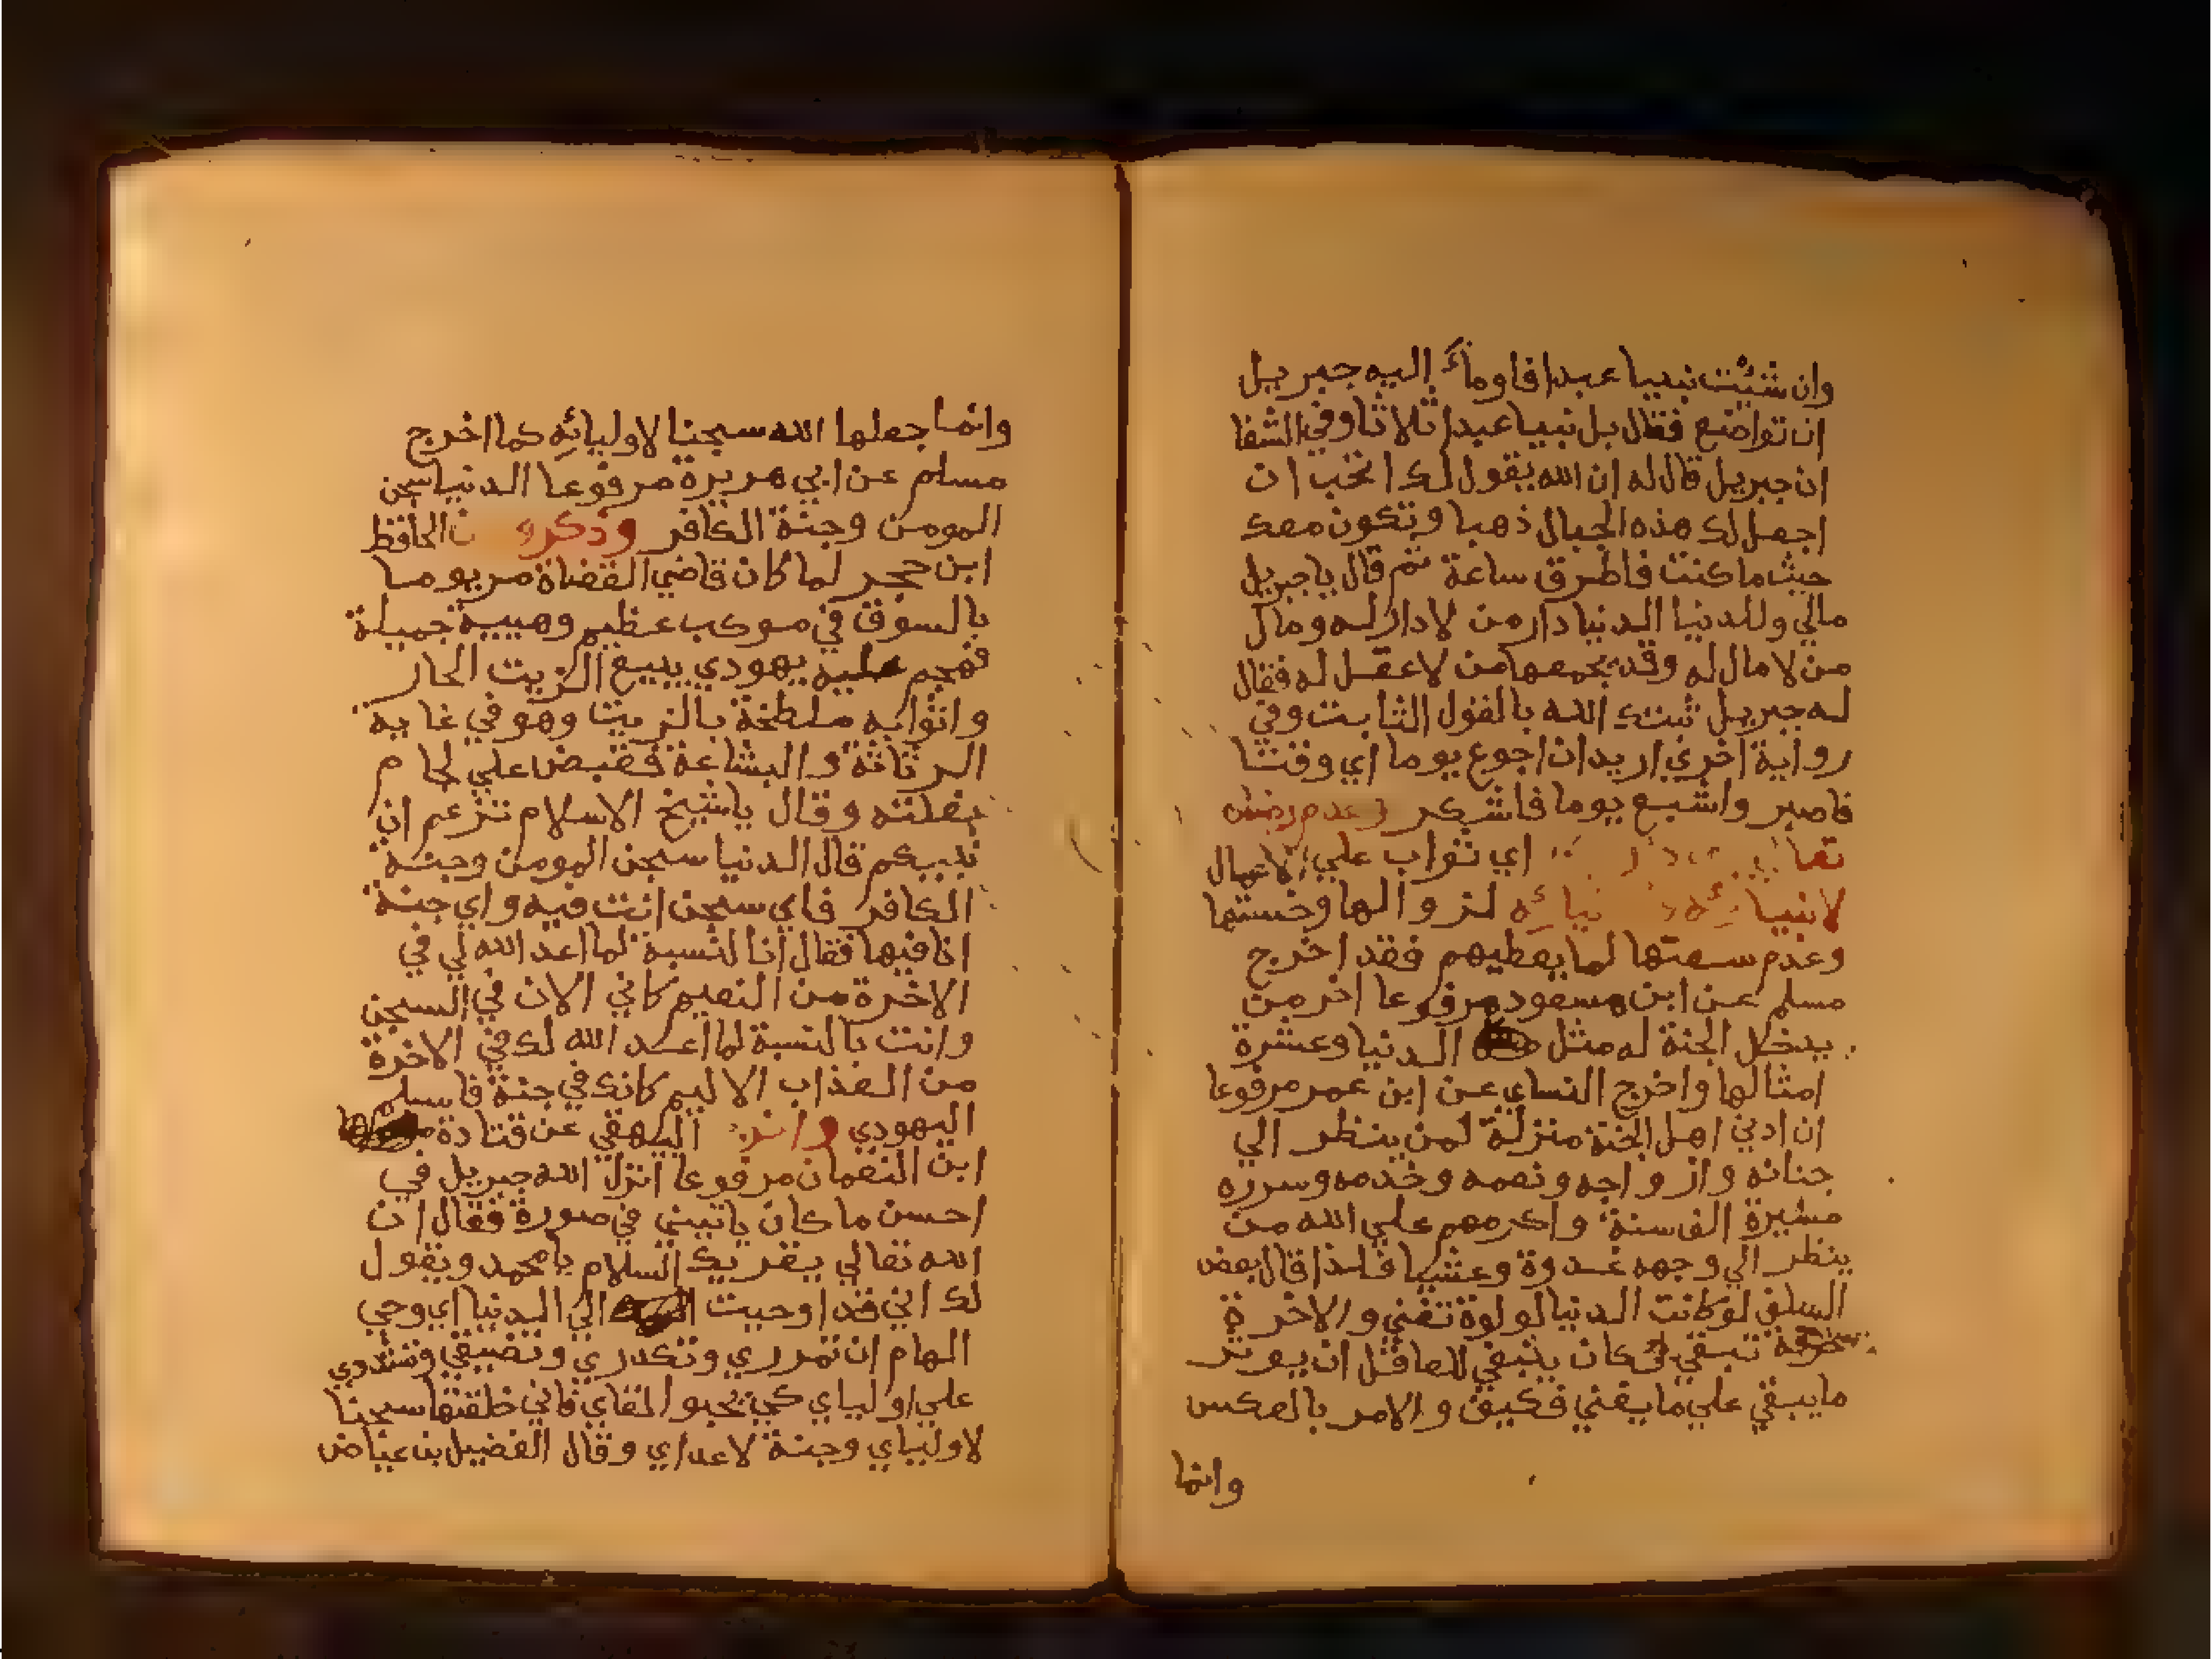 وان شئت نبيا عبدا فاومأ اليه جبريل
ان تواضع فقال بل نبيا عبدا ثلاثا وفي الشفا
ان جبريل قال له ان الله يقول لك اتحب ان
اجعل لك هذه الجبال ذهبا وتكون معك
حيث ما كنت فاطرق ساعة ثم قال يا جبريل
مالي وللدنيا الدنيا دار من لا دار له ومال
من لا مال له وقد يجمعها من لا عقل له فقال
له جبريل ثبتك الله بالقول الثابت وفي
رواية اخري اريد ان اجوع يوما اي وقتا
فاصبر واشبع يوما فاشكر وعدم رضاه
تعا اي ثواب علي الاعمال
لانبيائه لزوالها وخستها
وعدم سعتها لما يعطيهم فقد اخرج
مسلم عن ابن مسعود مرفوعا اخر من
يدخل الجنة له مثل الدنيا وعشرة
امثالها واخرج النساي عن ابن عمر مرفوعا
ان ادني اهل الجنة منزلة لمن ينظر الي
جنانه وازواجه ونعمه وخدمه وسرره
مسيرة الف سنة واكرمهم علي الله من
ينظر الي وجهه غدوة وعشيا فلذا قال بعض
السلف لو كانت الدنيا لولوة تفني والاخرة
تبقي لكان ينبغي للعاقل ان يوثر
ما يبقي علي ما يفني فكيف والامر بالعكس
وانما
وانما جعلها الله سجنا لاوليائه كما اخرج
مسلم عن ابي هريرة مرفوعا الدنيا سجن
المومن وجنة الكافر وذكروا ان الحافظ
ابن حجر لما كان قاضي القضاة مر يوما
بالسوق في موكب عظيم وهيبة جميلة
فهجم عليه يهودي يبيع الزيت الحار
واثوابه ملطخة بالزيت وهو في غاية
الرثاثة والبشاعة فقبض علي لجام
بغلته وقال يا شيخ الاسلام تزعم ان
نبيكم قال الدنيا سجن المومن وجنة
الكافر فاي سجن انت فيه واي جنة
انا فيها فقال انا لنسبة لما اعد الله لي في
الاخرة من النعيم كاني الان في السجن
وانت بالنسبة لما اعد الله لك في الاخرة
من العذاب الاليم كانك في جنة فاسلم
اليهودي واخرج البيهقي عن قتادة
ابن النعمان مرفوعا انزل الله جبريل في
احسن ما كان ياتيني في صورة فقال ان
الله تعالي يقريك السلام يا محمد ويقول
لك اني قد اوحيت الي الدنيا اي وحي
الهام ان تمرري وتكدري وتضيقي وتشددي
علي اولياي كي يحبوا لقاي فاني خلقتها سجنا
لاولياي وجنة لاعداي وقال الفضيل بن عياض